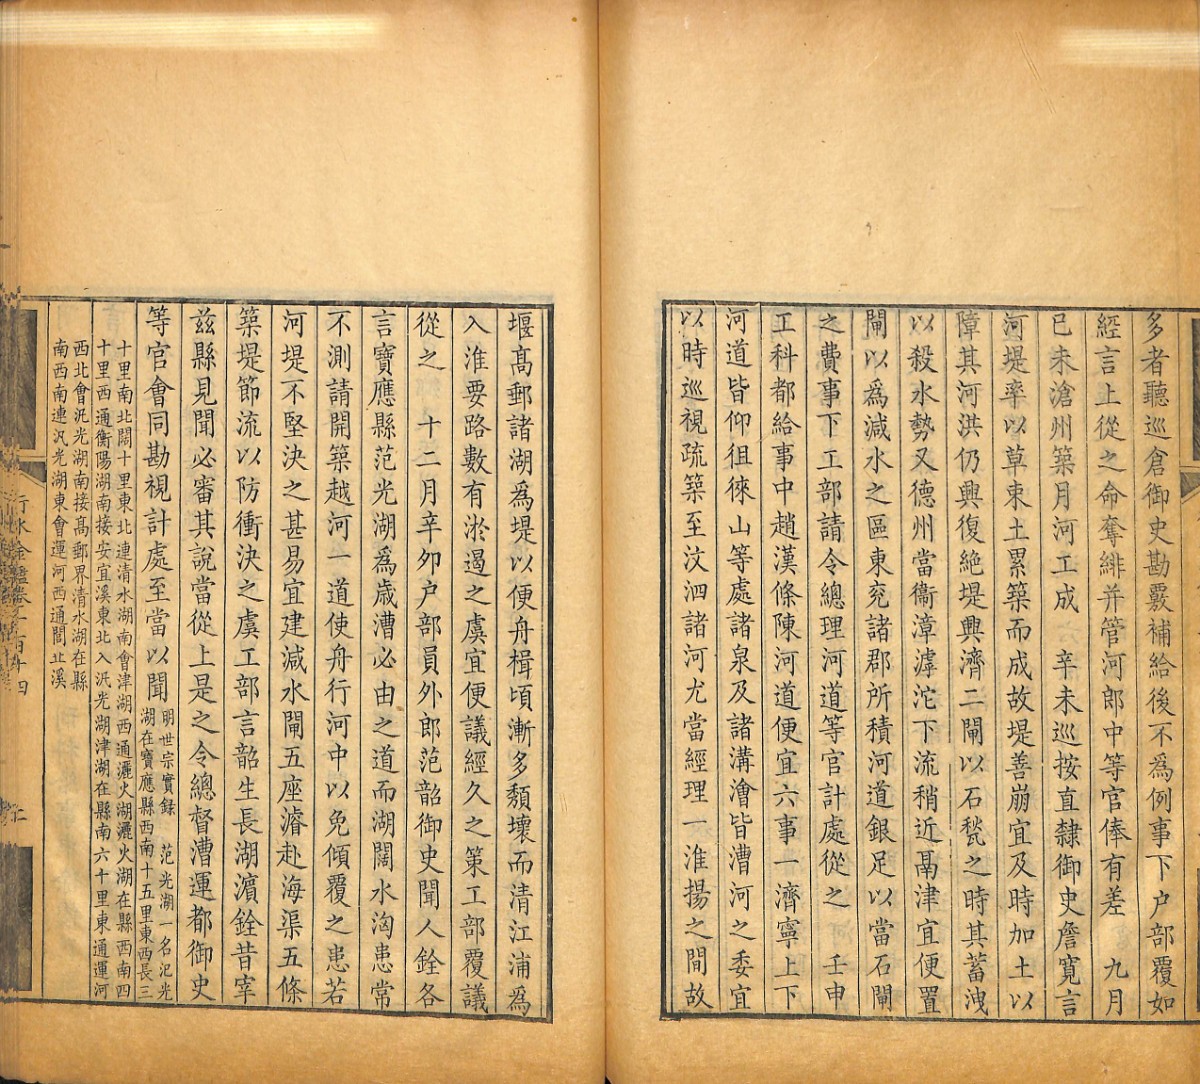 多者聽巡倉御史勘覈補給後不為例事下户部覆如
經言上從之命奪緋并管河郎中等官俸有差　九月
巳未滄州築月河工成　辛未巡按直隸御史詹寬言
河堤率以草束土累築而成故堤善崩宜及時加土以
障其河洪仍興復絶堤興濟二閘以石甃之時其蓄洩
以殺水勢又德州當衞漳滹沱下流稍近鬲津宜便置
閘以為減水之區東兖諸郡所積河道銀足以當石閘
之費事下工部請令總理河道等官計處從之　壬申
工科都給事中趙漢條陳河道便宜六事一濟寧上下
河道皆仰徂徠山等處諸泉及諸溝澮皆漕河之委宜
以時巡視疏築至汶泗諸河尤當經理一淮揚之間故
堰高郵諸湖為堤以便舟楫頃漸多頽壞而清江浦為
入淮要路數有淤遏之虞宜便議經久之策工部覆議
從之　十二月辛夘户部員外郎范韶御史聞人銓各
言寶應縣范光湖為歲漕必由之道而湖闊水洶患常
不測請開築越河一道使舟行河中以免傾覆之患若
河堤不堅決之甚易宜建減水閘五座濬赴海渠五條
築堤節流以防衝決之虞工部言韶生長湖濵銓昔宰
兹縣見聞必審其說當從上是之令總督漕運都御史
等官會同勘視計處至當以聞明世宗實録　范光湖一名氾光
湖在寶應縣西南十五里東西長三
十里南北闊十里東北連清水湖南會津湖西通灑火湖灑火湖在縣西南四
十里西通衡陽湖南接安宜溪東北入汎光湖津湖在縣南六十里東通運河
西北會汎光湖南接高郵界清水湖在縣
南西南連汎光湖東會運河西通閶㐀溪
行水金鑑卷